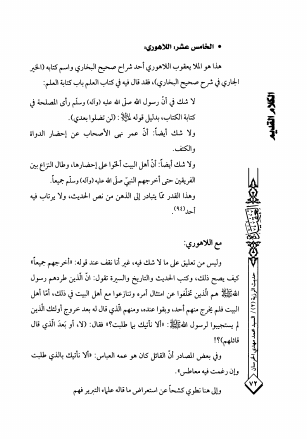 • الخامس عشر، اللاهوري:
هذا هو الملا يعقوب اللاهوري أحد شراح صحيح البخاري واسم كتابه (الخير
الجاري في شرح صحيح البخاري)، فقد قال فيه في كتاب العلم باب كتابة العلم:
لا شك في أنّ رسول الله صلّى الله عليه (وآله) وسلّم رأى المصلحة في
كتابة الكتاب، بدليل قوله ﷺ: (لن تضلوا بعدي).
ولا شك أيضاً: أنّ عمر نهى الأصحاب عن إحضار الدواة
والكتف.
ولا شك أيضاً: أنّ أهل البيت ألحّوا على إحضارها، وطال النزاع بين
الفريقين حتى أخرجهم النبيّ صلّى الله عليه (وآله) وسلّم جميعاً.
وهذا القدر ممّا يتبادر إلى الذهن من نص الحديث، ولا يرتاب فيه
أحد(٩٤).
مع اللاهوري:
وليس من تعليق على ما لا شك فيه، غير أنا نقف عند قوله: «أخرجهم جميعاً»
كيف يصح ذلك، وكتب الحديث والتاريخ والسيرة تقول: انّ الّذين طردهم رسول
الله ﷺ هم الّذين تخلّفوا عن امتثال أمره وتنازعوا مع أهل البيت في ذلك، أمّا أهل
البيت فلم يخرج منهم أحد، وبقوا عنده، ومنهم الّذي قال له بعد خروج أولئك الّذين
لم يستجيبوا لرسول الله ﷺ: «ألا نأتيك بما طلبت؟» فقال: (لا، أو بَعدَ الّذي قال
قائلهم؟)؟
وفي بعض المصادر أنّ القائل كان هو عمه العباس: «ألا نأتيك بالذي طلبت
وإن رغمت فيه معاطس».
وإلى هنا نطوي كشحاً عن استعراض ما قاله علماء التبرير فهم
٧٢